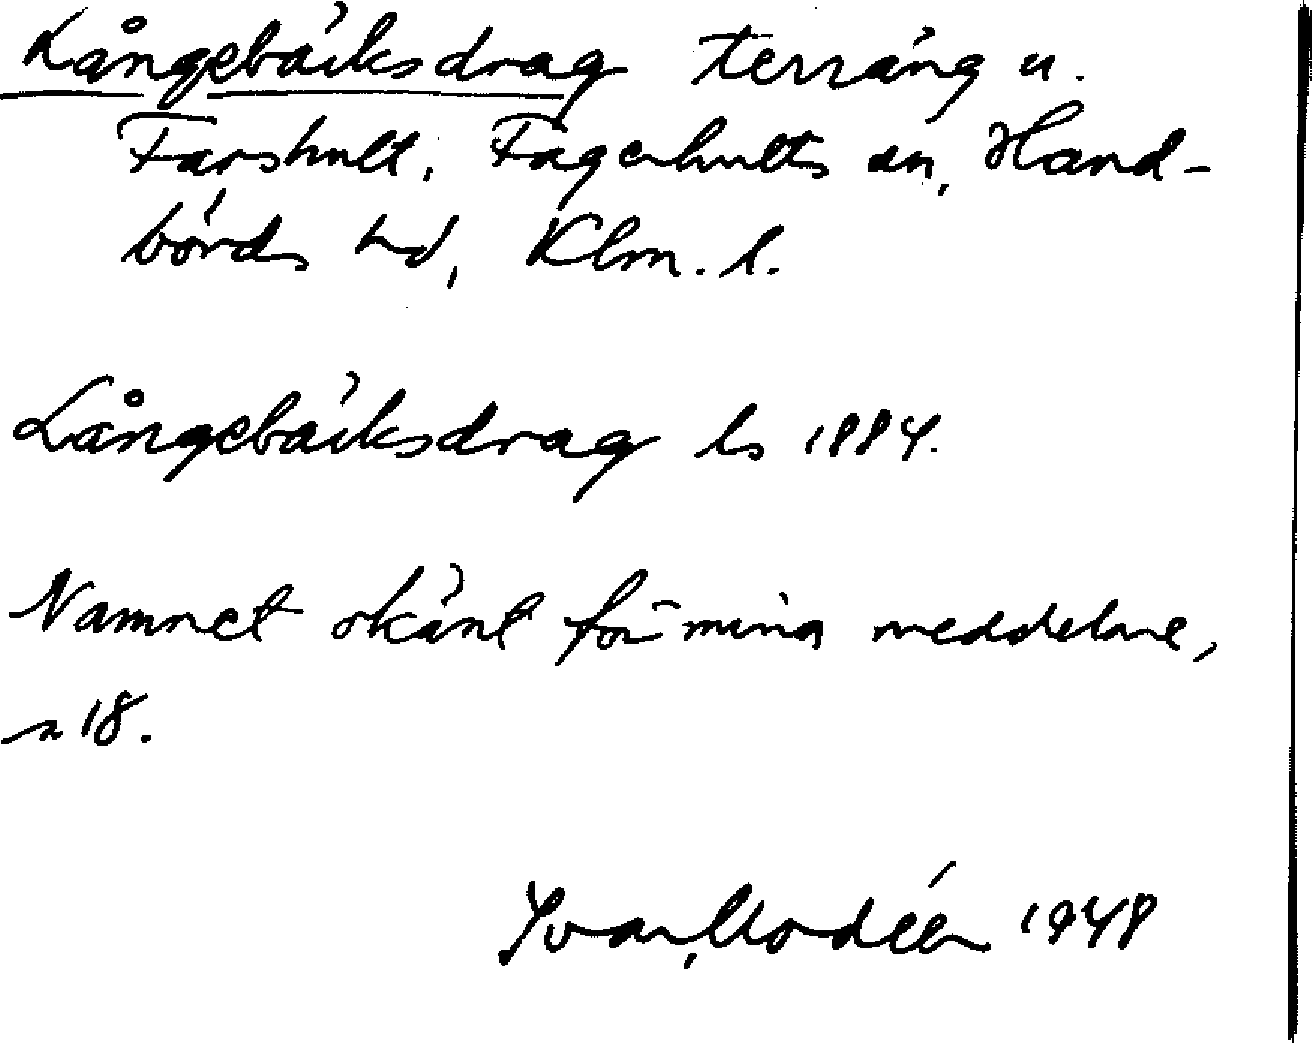 Långebäcksdrag terräng u.
Farshult, Fagerhults sn, Hand-
börds hd, Klm. l.
Långebäcksdrag ls 1884.
Namnet okänt för mina meddelare,
n 18.
Ivar Modéer 1948